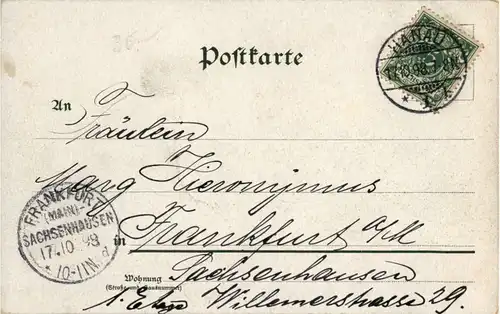 Postkarte
HANAU
* 1-1 *
An
Fräulein
Marg Hieronymus
in Frankfurt a/M
Wohnung
(Straße und Hausnummer)
Sachsenhausen
1. Etage Willemerstrasse 29.
FRANKFURT
(MAIN)-
SACHSENHAUSEN
17.10 98
* 10-11N. d